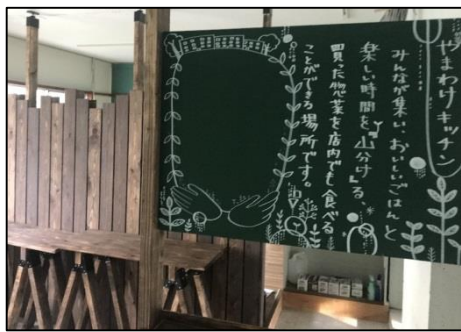 やまわけキッチン
みんなが集い、おいしいごはんと
楽しい時間を"山分け"る、
買った惣菜を店内でも食べる
ことができる場所です。